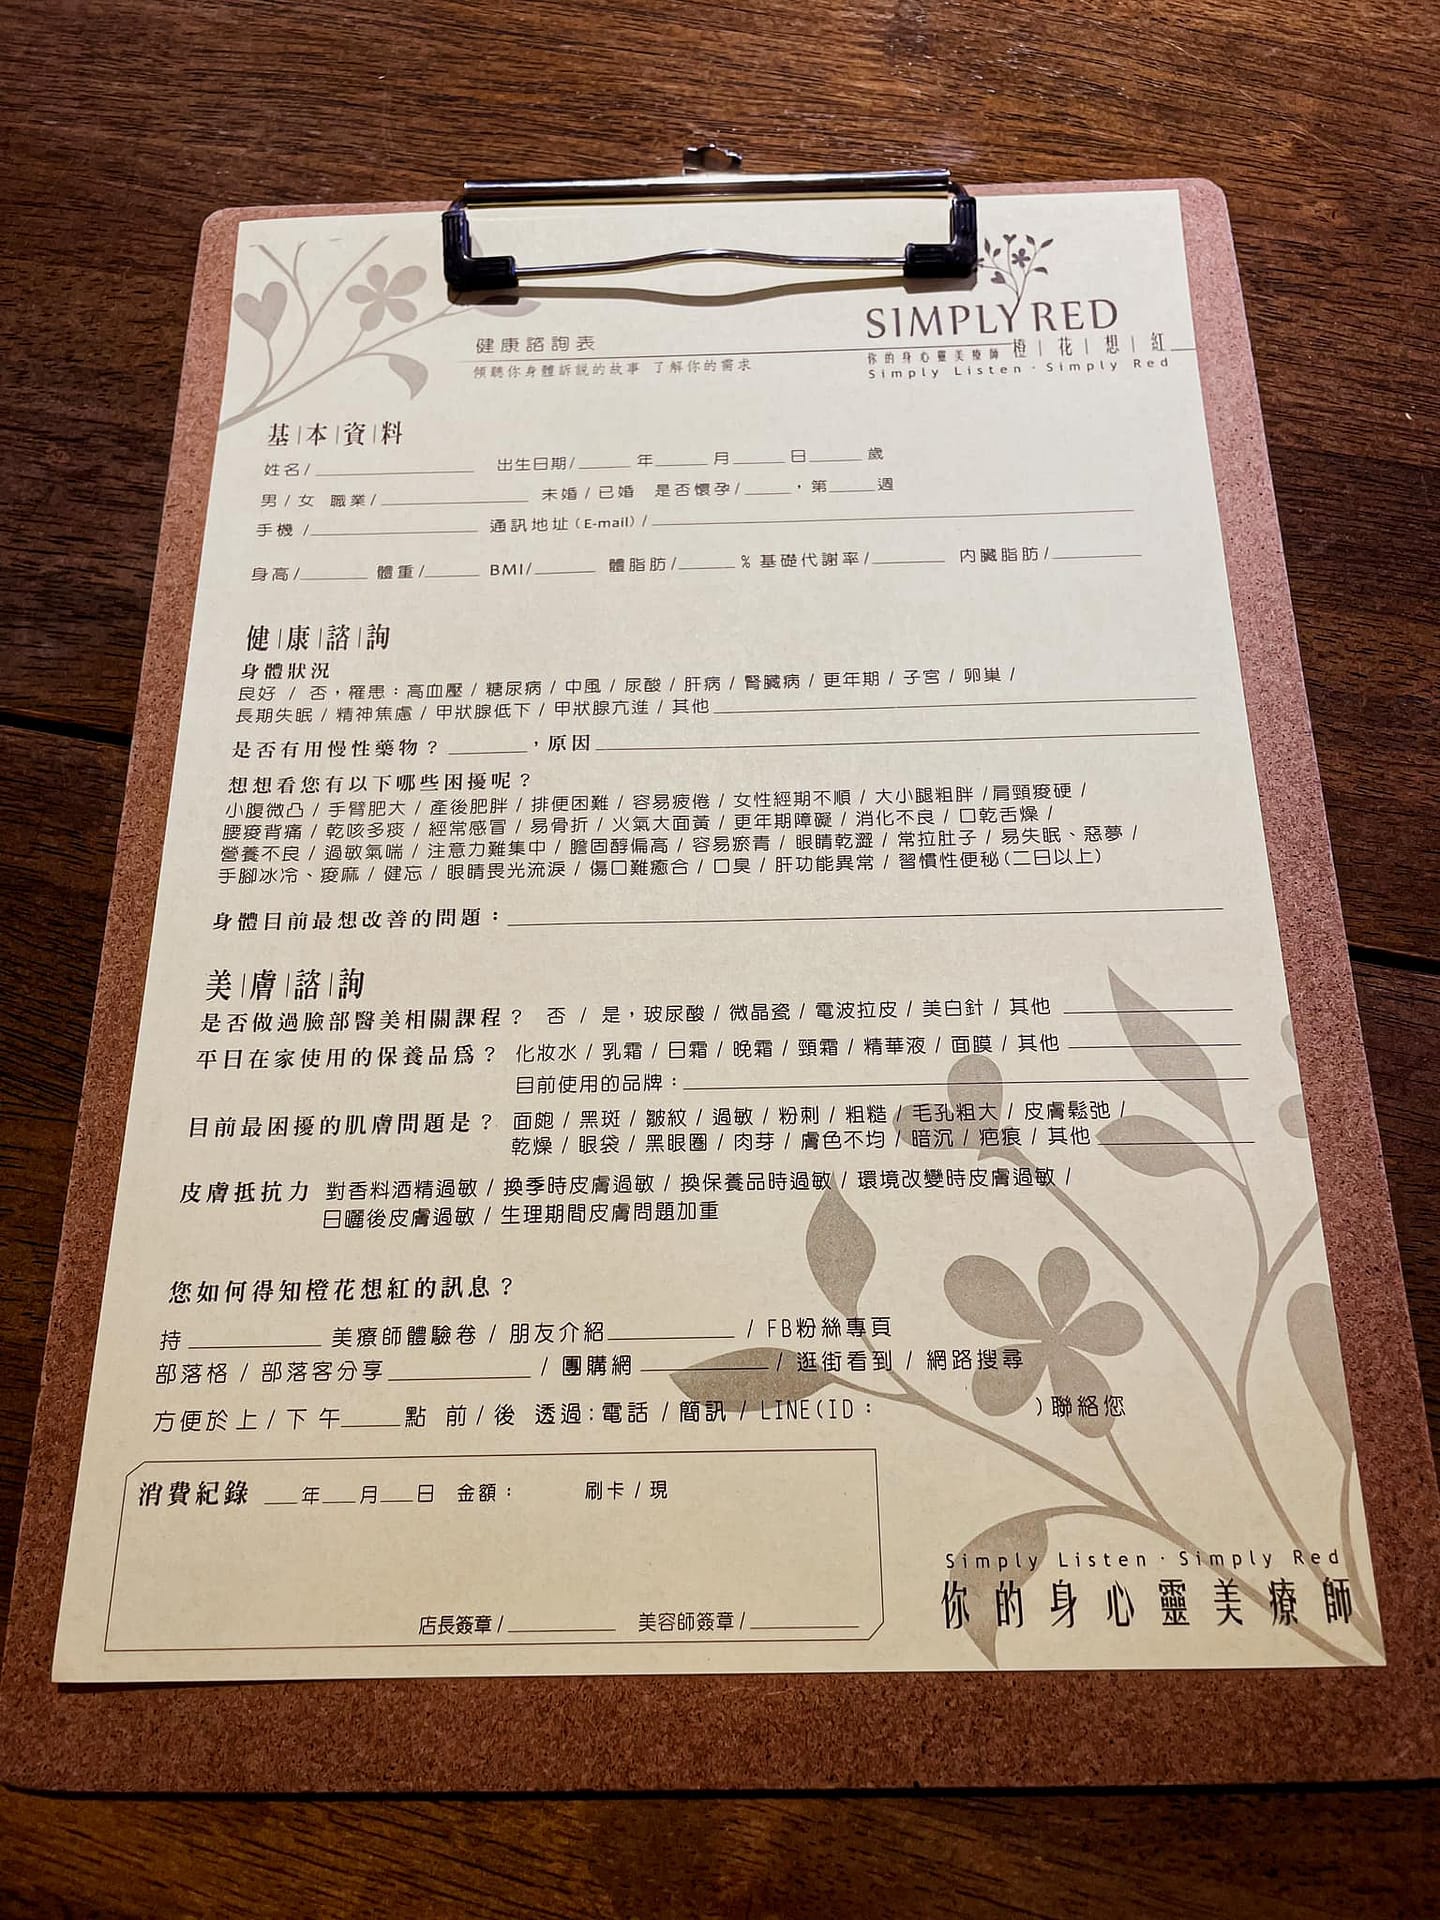 SIMPLY RED
健康諮詢表
你的身心靈美療師 橙|花|想|紅
傾聽你身體訴說的故事 了解你的需求
Simply Listen · Simply Red
基|本|資|料
姓名/ 出生日期/ 年 月 日 歲
男/女 職業/ 未婚/已婚 是否懷孕/ ，第 週
手機/ 通訊地址(E-mail)/
身高/ 體重/ BMI/ 體脂肪/ % 基礎代謝率/ 內臟脂肪/
健|康|諮|詢
身體狀況
良好 / 否，罹患：高血壓 / 糖尿病 / 中風 / 尿酸 / 肝病 / 腎臟病 / 更年期 / 子宮 / 卵巢 /
長期失眠 / 精神焦慮 / 甲狀腺低下 / 甲狀腺亢進 / 其他
是否有用慢性藥物？ ，原因
想想看您有以下哪些困擾呢？
小腹微凸 / 手臂肥大 / 產後肥胖 / 排便困難 / 容易疲倦 / 女性經期不順 / 大小腿粗胖 /肩頸痠硬 /
腰痠背痛 / 乾咳多痰 / 經常感冒 / 易骨折 / 火氣大面黃 / 更年期障礙 / 消化不良 / 口乾舌燥 /
營養不良 / 過敏氣喘 / 注意力難集中 / 膽固醇偏高 / 容易瘀青 / 眼睛乾澀 / 常拉肚子 / 易失眠、惡夢 /
手腳冰冷、痠麻 / 健忘 / 眼睛畏光流淚 / 傷口難癒合 / 口臭 / 肝功能異常 / 習慣性便秘(二日以上)
身體目前最想改善的問題：
美|膚|諮|詢
是否做過臉部醫美相關課程？ 否 / 是，玻尿酸 / 微晶瓷 / 電波拉皮 / 美白針 / 其他
平日在家使用的保養品為？ 化妝水 / 乳霜 / 日霜 / 晚霜 / 頸霜 / 精華液 / 面膜 / 其他
目前使用的品牌：
目前最困擾的肌膚問題是？ 面皰 / 黑斑 / 皺紋 / 過敏 / 粉刺 / 粗糙 / 毛孔粗大 / 皮膚鬆弛 /
乾燥 / 眼袋 / 黑眼圈 / 肉芽 / 膚色不均 / 暗沉 / 疤痕 / 其他
皮膚抵抗力 對香料酒精過敏 / 換季時皮膚過敏 / 換保養品時過敏 / 環境改變時皮膚過敏 /
日曬後皮膚過敏 / 生理期間皮膚問題加重
您如何得知橙花想紅的訊息？
持 美療師體驗卷 / 朋友介紹 / FB粉絲專頁
部落格 / 部落客分享 / 團購網 / 逛街看到 / 網路搜尋
方便於上/下午 點 前/後 透過:電話 / 簡訊 / LINE(ID： )聯絡您
消費紀錄 年 月 日 金額： 刷卡 / 現
店長簽章/ 美容師簽章/
Simply Listen · Simply Red
你的身心靈美療師